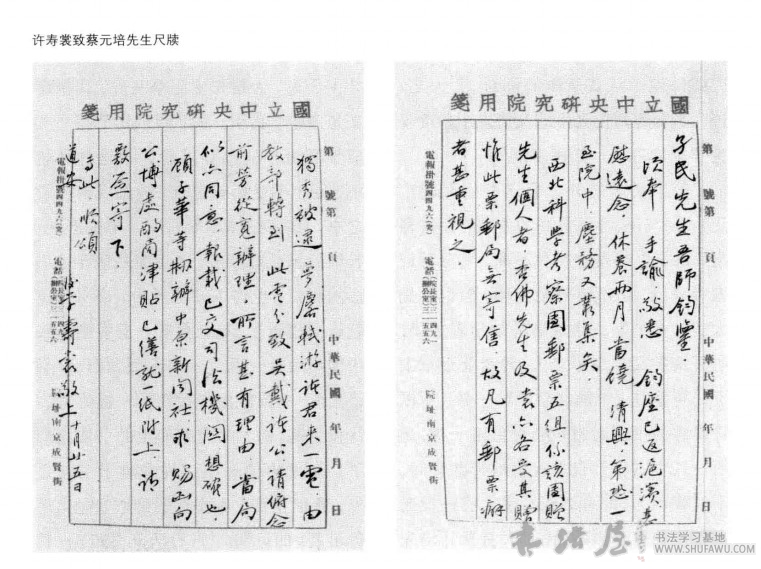 许寿裳致蔡元培先生尺牍
國立中央研究院用箋
第 號第 頁 中華民國 年 月 日
孑民先生吾師鈞鑒：
頃奉 手諭，敬悉 鈞座已返滬濱，甚
慰遠念。休養兩月，當饒清興，第恐一
至院中，塵務又叢集矣。
西北科學考察團郵票五組，係該團贈
先生個人者，杏佛先生及裳亦各受其贈，
惟此票郵局無寄信，故凡有郵票癖
者甚重視之。
電報掛號四四九六（寒） 電話 院址南京成賢街
國立中央研究院用箋
第 號第 頁 中華民國 年 月 日
獨秀被逮，夢麐軾游諸君來一電，由
教部轉到，此電分致吴戴諸公，請俯念
前勞，從寬辦理，所言甚有理由，當局
似亦同意，報載已交司法機關，想確也。
顧子華等擬辦中原新聞社，求賜函向
公博處酌商津貼，已繕就一紙附上，請
蓋寄下。
專此，順頌
道安
壽裳敬上 十月廿五日
電報掛號四四九六（寒） 電話 院址南京成賢街
书法屋
书法学习基地
WWW.SHUFAWU.COM